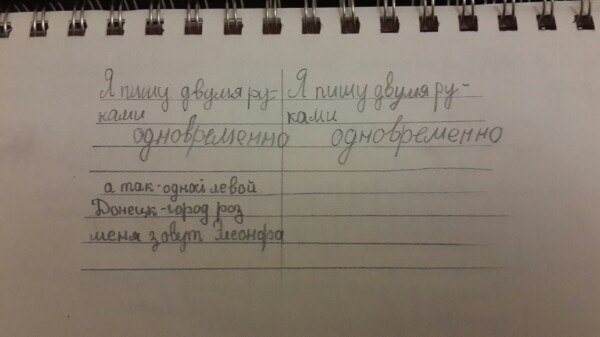 Я пишу двумя ру- Я пишу двумя ру-
ками ками
одновременно одновременно
а так-одной левой
Донецк-город роз
меня зовут Элеонора